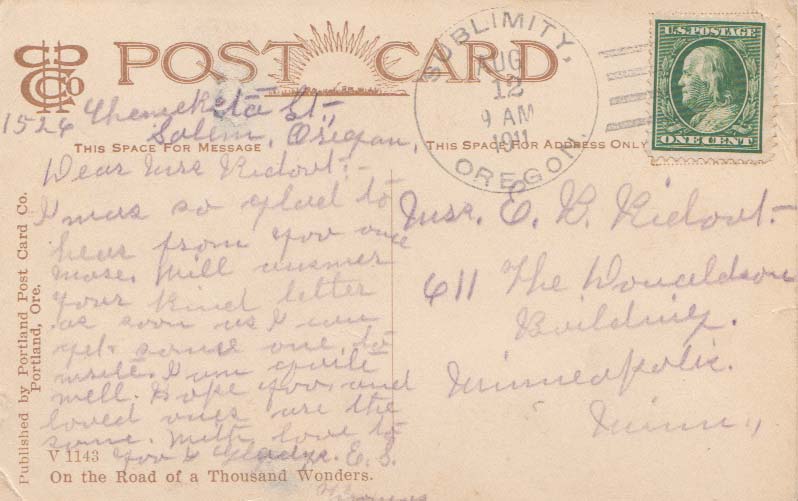 POST CARD
CO
SUBLIMITY,
AUG
12
9 AM
1911
OREGON.
U.S. POSTAGE
ONE CENT
THIS SPACE FOR MESSAGE
THIS SPACE FOR ADDRESS ONLY
1526 Chemeketa St-
Salem, Oregon,
Dear Mrs Ridout:-
I was so glad to
hear from you once
more. Will answer
your kind letter
as soon as I can
get some one to
write. I am quite
well. Hope you and
loved ones are the
same. With love to
you & Gladys. E. S.
Mrs. E. B. Ridout-
611 The Donaldson
Building.
Minneapolis.
Minn.,
Published by Portland Post Card Co.
Portland, Ore.
V 1143
On the Road of a Thousand Wonders.